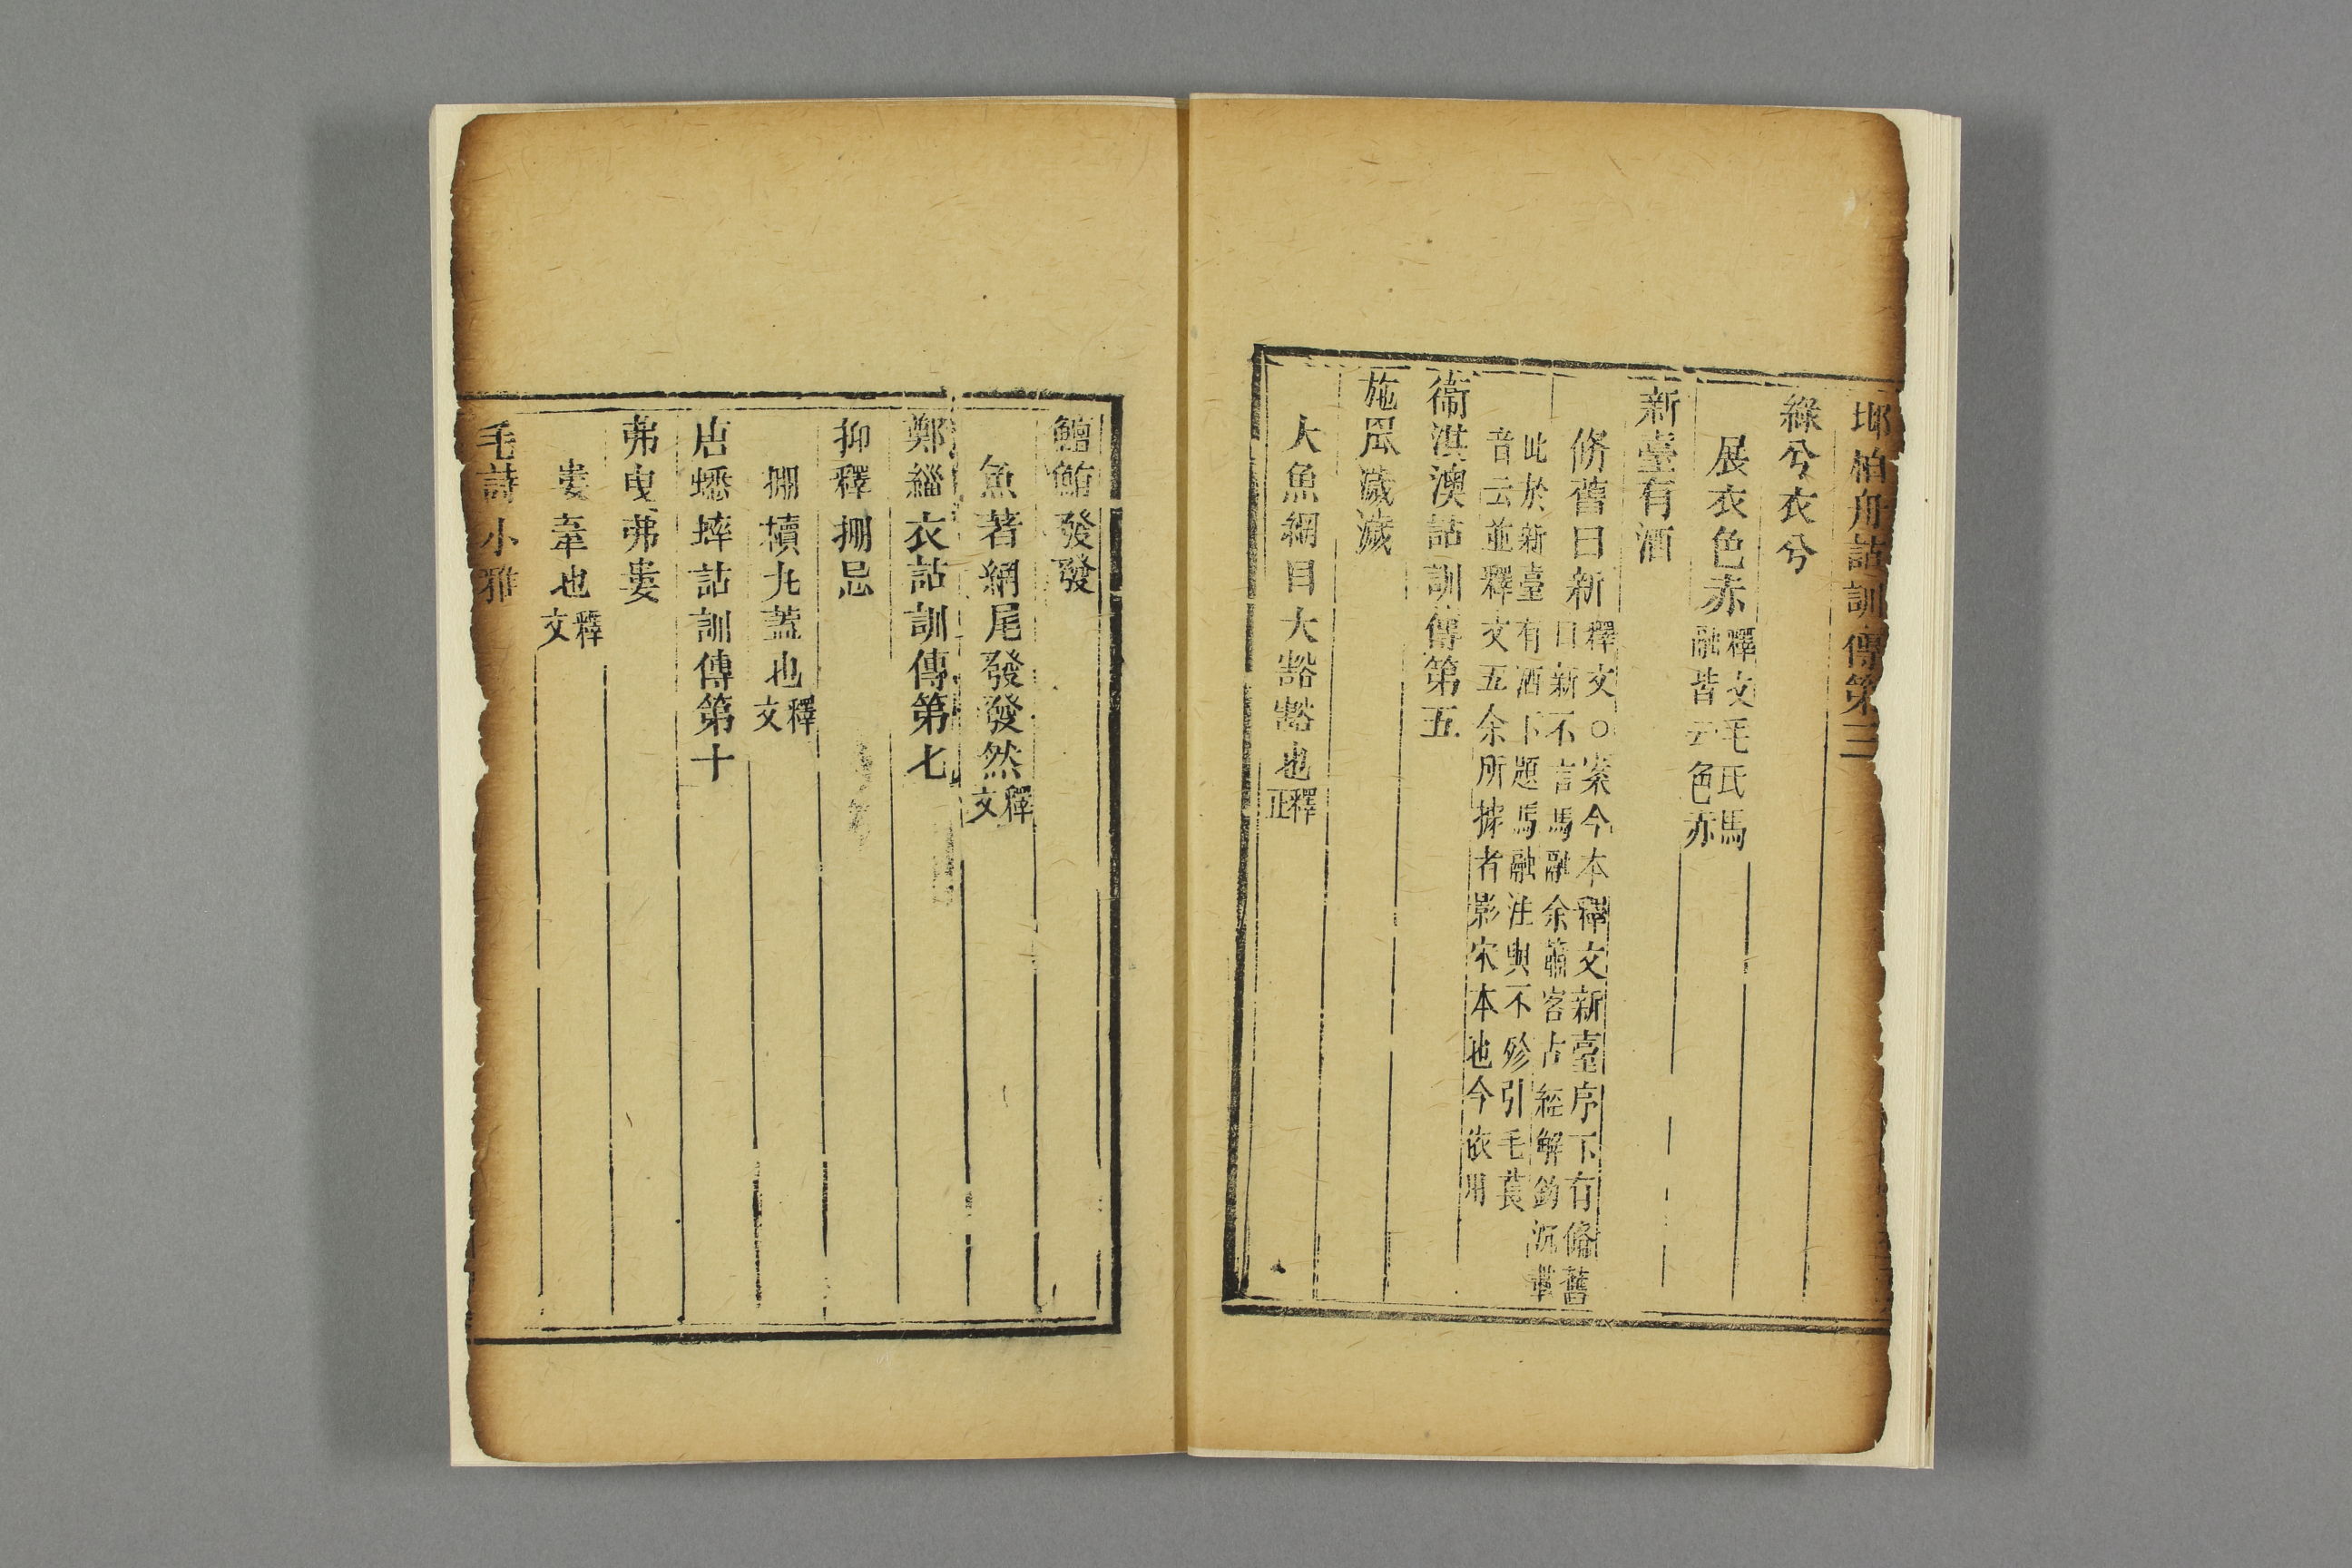 邶柏舟詁訓傳第三
綠兮衣兮
展衣色赤釋文毛氏馬
融皆云色赤
新臺有洒
脩舊曰新釋文○案今本釋文新臺序下有脩舊
曰新不言馬融余蕭客古經解鉤沉
此於新臺有洒下題馬融注與不殄引毛萇
音云並釋文五余所據者影宋本也今依用
衞淇澳詁訓傳第五
施罛濊濊
大魚網目大豁豁也釋
正
鱣鮪發發
魚著網尾發發然釋
文
鄭緇衣詁訓傳第七
抑釋掤忌
掤櫝丸蓋也釋
文
唐蟋蟀詁訓傳第十
弗曳弗婁
婁牽也釋
文
毛詩小雅